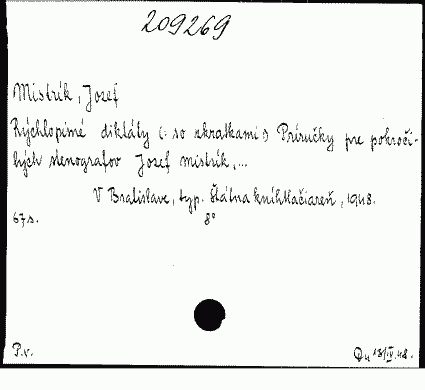 209269
Mistrík, Jozef
Rýchlopisné diktáty (: so skratkami :) Príručky pre pokroči-
lých stenografov Jozef Mistrík,...
V Bratislave, typ. Štátna kníhtlačiareň, 1948.
67 s. 8°
P.v. Du 13/IV.48.